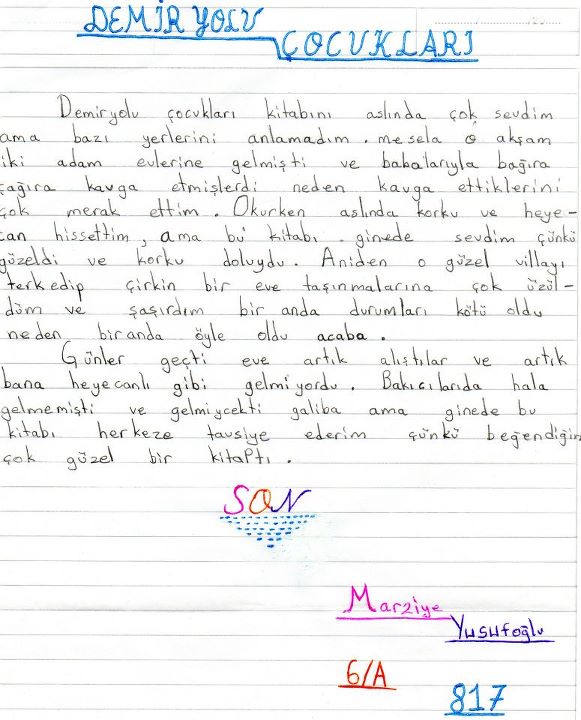 DEMİR YOLU
ÇOCUKLARI
Demiryolu çocukları kitabını aslında çok sevdim
ama bazı yerlerini anlamadım. mesela o akşam
iki adam evlerine gelmişti ve babalarıyla bağıra
çağıra kavga etmişlerdi neden kavga ettiklerini
çok merak ettim. Okurken aslında korku ve heye-
can hissettim, ama bu kitabı ginede sevdim çünkü
güzeldi ve korku doluydu. Aniden o güzel villayı
terkedip çirkin bir eve taşınmalarına çok üzül-
düm ve şaşırdım bir anda durumları kötü oldu
neden biranda öyle oldu acaba.
Günler geçti eve artık alıştılar ve artık
bana heyecanlı gibi gelmiyordu. Bakıcılarıda hala
gelmemişti ve gelmiycekti galiba ama ginede bu
kitabı herkeze tavsiye ederim çünkü beğendiğim
çok güzel bir kitaptı.
SON
Marziye
Yusufoğlu
6/A
817